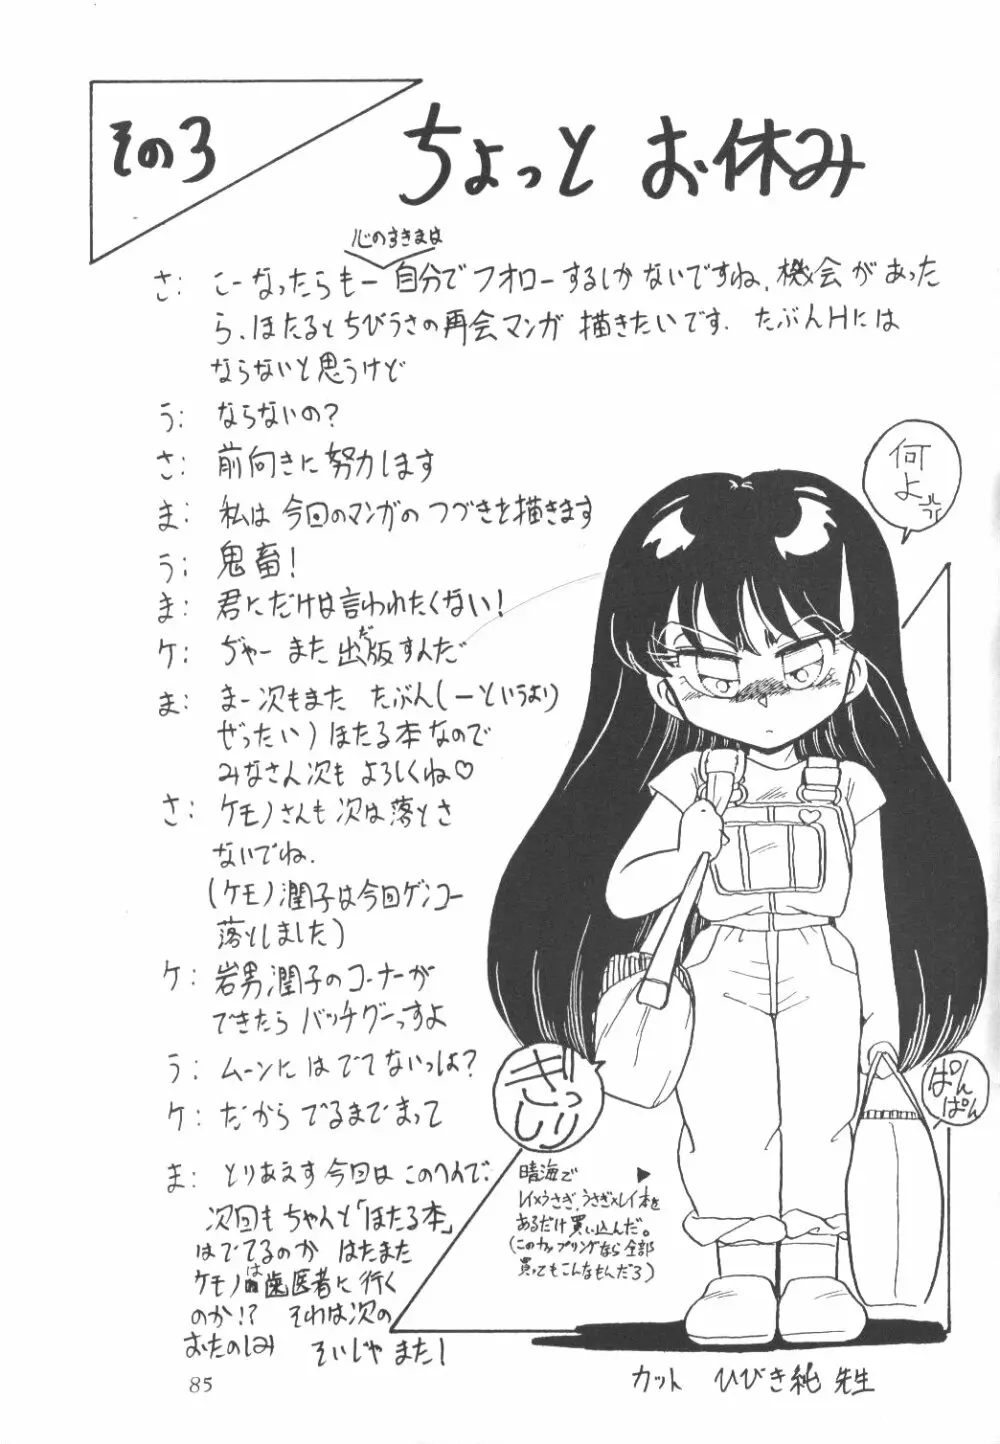 その3
ちょっと お休み
心のすきまは
さ: こーなったらもー自分でフォローするしかないですね、機会があった
ら、ほたるとちびうさの再会マンガ 描きたいです. たぶんHには
ならないと思うけど
う: ならないの?
さ: 前向きに努力します
ま: 私は今回のマンガのつづきを描きます
う: 鬼畜!
ま: 君にだけは言われたくない!
ケ: ぢゃー また 出版すんだ
だ
ま: まー次もまた たぶん(ーというより
ぜったい)ほたる本なので
みなさん次も よろしくね♡
さ: ケモノさんも次は落とさ
ないでね.
(ケモノ潤子は今回ゲンコー
落としました)
ケ: 岩男潤子のコーナーが
できたら バッチグーっすよ
う: ムーンにはでてないっしょ?
ケ: だから でるまでまって
ま: とりあえす今回は このへんで.
次回もちゃんと「ほたる本」
はでてるのか はたまた
ケモノは歯医者に行く
のか!? それは次の
おたのしみ そいじゃ またー
何よ
ぎっしり
ぱんぱん
晴海で
レイ×うさぎ、うさぎ×レイ本を
あるだけ買い込んだ。
(このカップリングなら全部
買ってもこんなもんだろ)
カット ひびき純 先生
85